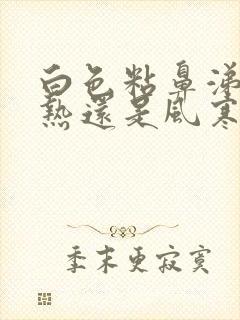 白色粘鼻涕
熱還是風寒
季末更寂寞